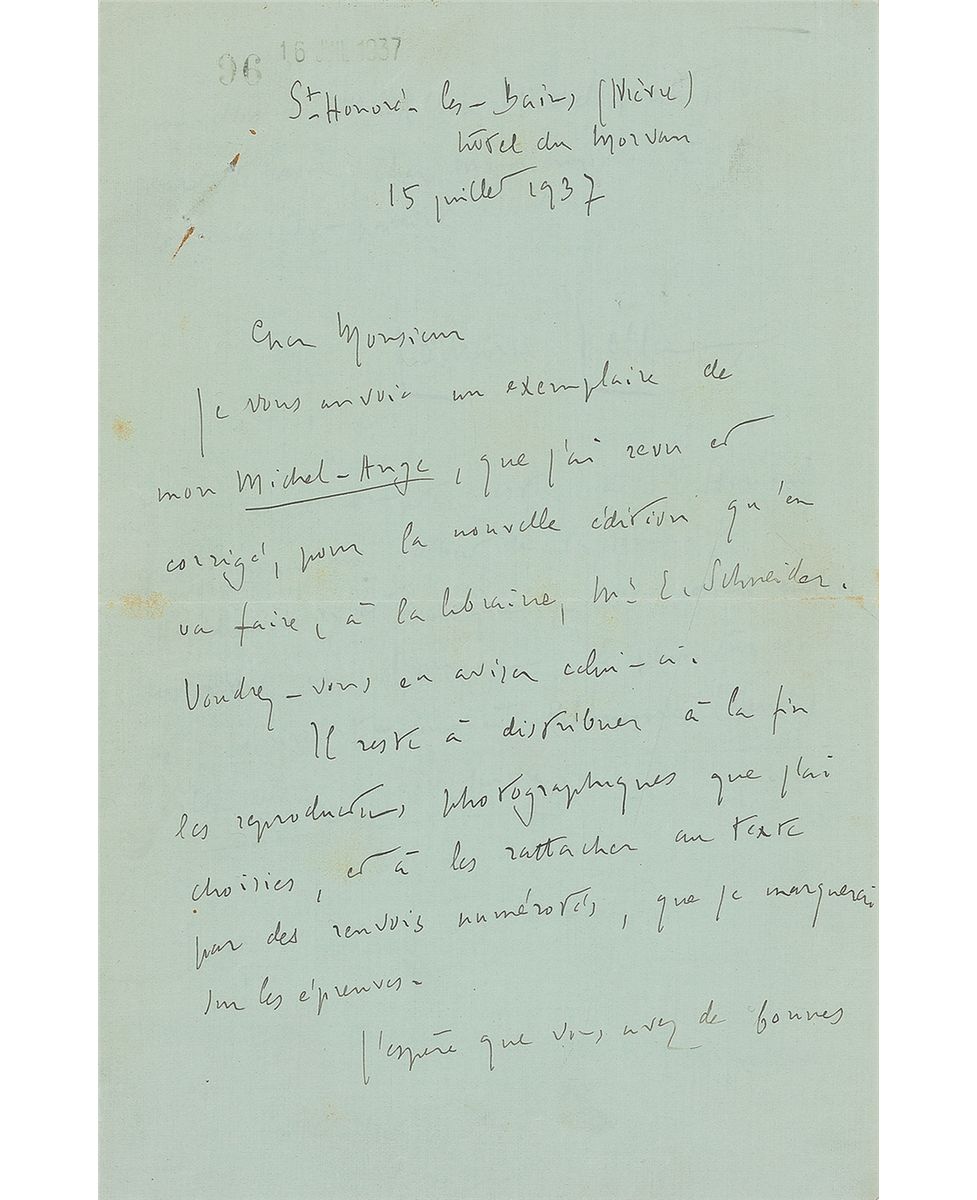 96 16 JUL 1937
St-Honoré-les-Bains (Nièvre)
hôtel du Morvan
15 juillet 1937
Cher Monsieur
Je vous envoie un exemplaire de
mon Michel-Ange, que j'ai revu et
corrigé, pour la nouvelle édition qu'en
va faire, à la librairie, Mr E. Schneider.
Voudrez-vous en aviser celui-ci.
Il reste à distribuer à la fin
les reproductions photographiques que j'ai
choisies, et à les rattacher au texte
par des renvois numérotés, que je marquerai
sur les épreuves.
J'espère que vous avez de bonnes